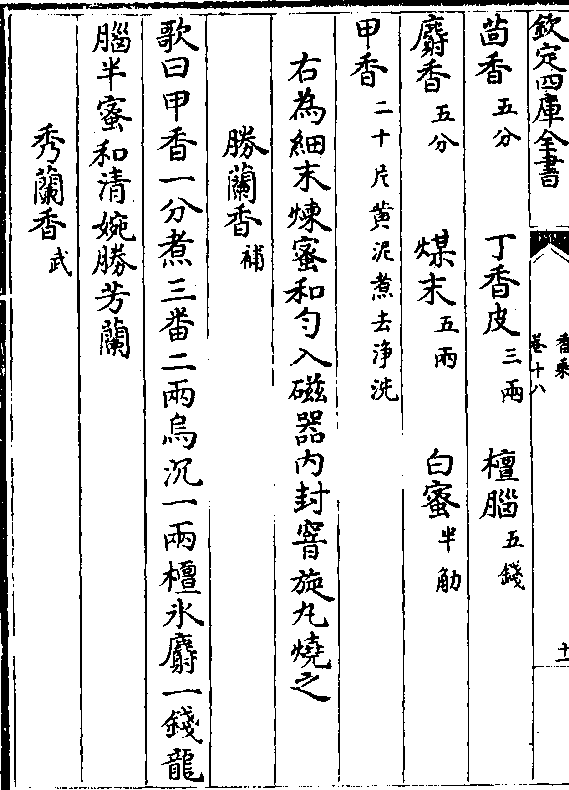 欽定四庫全書
香乘
卷十八
十一
茴香五分 丁香皮三兩 檀腦五錢
麝香五分 煤末五兩 白蜜半觔
甲香二十片黄泥煮去净洗
右為細末煉蜜和勻入磁器内封窨旋丸燒之
勝蘭香補
歌曰甲香一分煮三番二兩烏沉一兩檀氷麝一錢龍
腦半蜜和清婉勝芳蘭
秀蘭香武